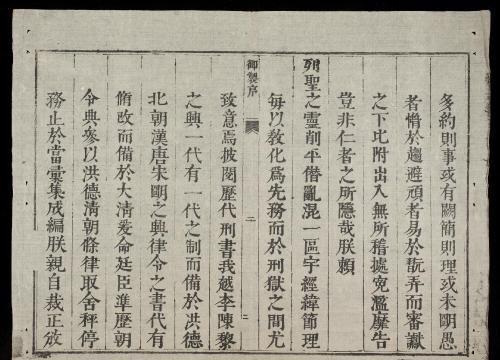 多約則事或有闕簡則理或未明愚
者惛於趨避頑者易於玩弄而審讞
之下比附出入無所稽據寃濫靡告
豈非仁者之所隱哉朕賴
列聖之靈削平僭亂混一區宇經緯節理
御製序 二
每以教化爲先務而於刑獄之間尤
致意焉披閱歷代刑書我越李陳黎
之興一代有一代之制而備於洪德
北朝漢唐宋明之興律令之書代有
脩改而備於大清爰命廷臣準歷朝
令典參以洪德清朝條律取舍秤停
務止於當彙集成編朕親自裁正放